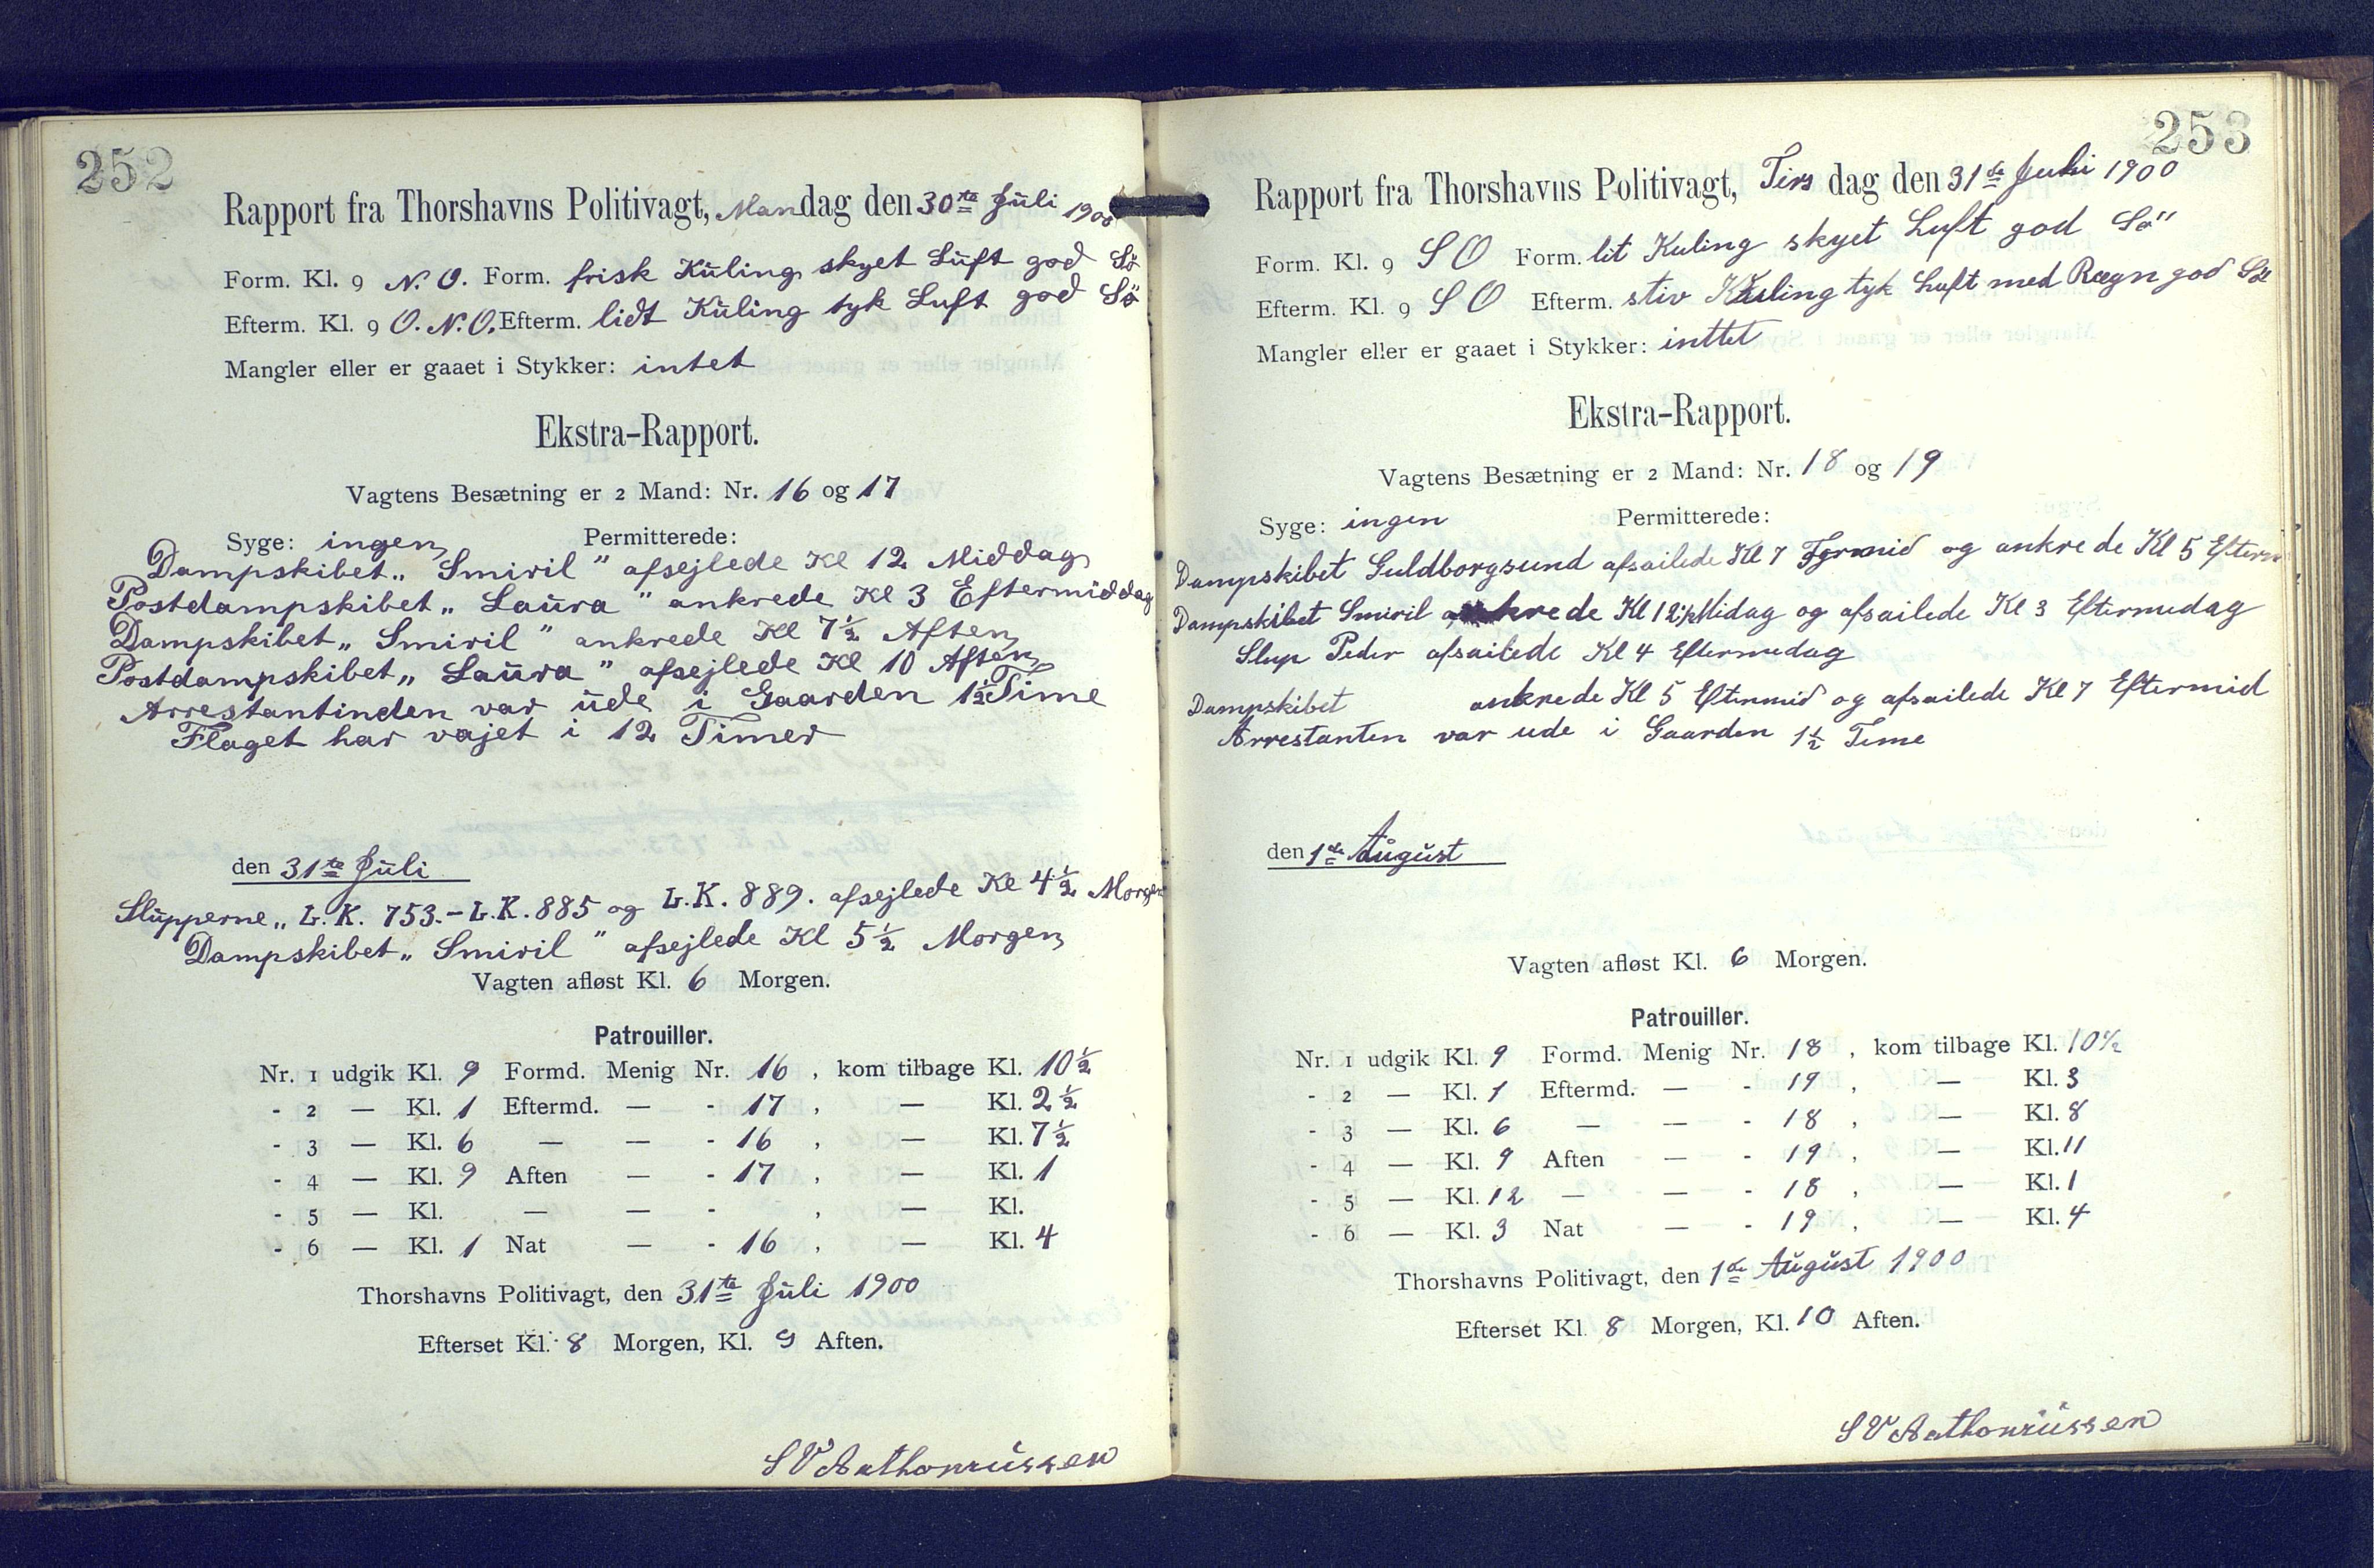 252
Rapport fra Thorshavns Politivagt, Mandag den 30te Juli 1900
Form. Kl. 9 N. O. Form. frisk Kuling skyet Luft god Sö
Efterm. Kl. 9 O. N. O. Efterm. lidt Kuling tyk Luft god Sö
Mangler eller er gaaet i Stykker: intet
Ekstra-Rapport.
Vagtens Besætning er 2 Mand: Nr. 16 og 17
Syge: ingen Permitterede:
Dampskibet „Smiril" afsejlede Kl 12 Middag
Postdampskibet „Laura" ankrede Kl 3 Eftermiddag
Dampskibet „Smiril" ankrede Kl 7½ Aften
Postdampskibet „Laura" afsejlede Kl 10 Aften
Arrestantinden var ude i Gaarden 1½ Time
Flaget har vajet i 12 Timer
den 31te Juli
Slupperne „L.K. 753.-L.K. 885 og L.K. 889. afsejlede Kl 4½ Morgen
Dampskibet „Smiril" afsejlede Kl 5½ Morgen
Vagten afløst Kl. 6 Morgen.
Patrouiller.
Nr. 1 udgik Kl. 9 Formd. Menig Nr. 16, kom tilbage Kl. 10½
- 2 — Kl. 1 Eftermd. — - 17, — Kl. 2½
- 3 — Kl. 6 — — - 16, — Kl. 7½
- 4 — Kl. 9 Aften — - 17, — Kl. 1
- 5 — Kl. — — - , — Kl.
- 6 — Kl. 1 Nat — - 16, — Kl. 4
Thorshavns Politivagt, den 31te Juli 1900
Efterset Kl. 8 Morgen, Kl. 9 Aften.
253
Rapport fra Thorshavns Politivagt, Tirsdag den 31te Juli 1900
Form. Kl. 9 SO Form. lit Kuling skyet Luft god Sö
Efterm. Kl. 9 SO Efterm. stiv Kuling tyk Luft med Rægn god Sö
Mangler eller er gaaet i Stykker: inttet
Ekstra-Rapport.
Vagtens Besætning er 2 Mand: Nr. 18 og 19
Syge: ingen Permitterede:
Dampskibet Guldborgsund afsailede Kl 7 Formid og ankrede Kl 5 Efterm
Dampskibet Smiril ankrede Kl 12½ Midag og afsailede Kl 3 Eftermidag
Slup Peder afsailede Kl 4 Eftermedag
Dampskibet ankrede Kl 5 Eftermid og afsailede Kl 7 Eftermid
Arrestanten var ude i Gaarden 1½ Time
den 1de August
Vagten afløst Kl. 6 Morgen.
Patrouiller.
Nr. 1 udgik Kl. 9 Formd. Menig Nr. 18, kom tilbage Kl. 10½
- 2 — Kl. 1 Eftermd. — - 19, — Kl. 3
- 3 — Kl. 6 — — - 18, — Kl. 8
- 4 — Kl. 9 Aften — - 19, — Kl. 11
- 5 — Kl. 12 — — - 18, — Kl. 1
- 6 — Kl. 3 Nat — - 19, — Kl. 4
Thorshavns Politivagt, den 1de August 1900
Efterset Kl. 8 Morgen, Kl. 10 Aften.